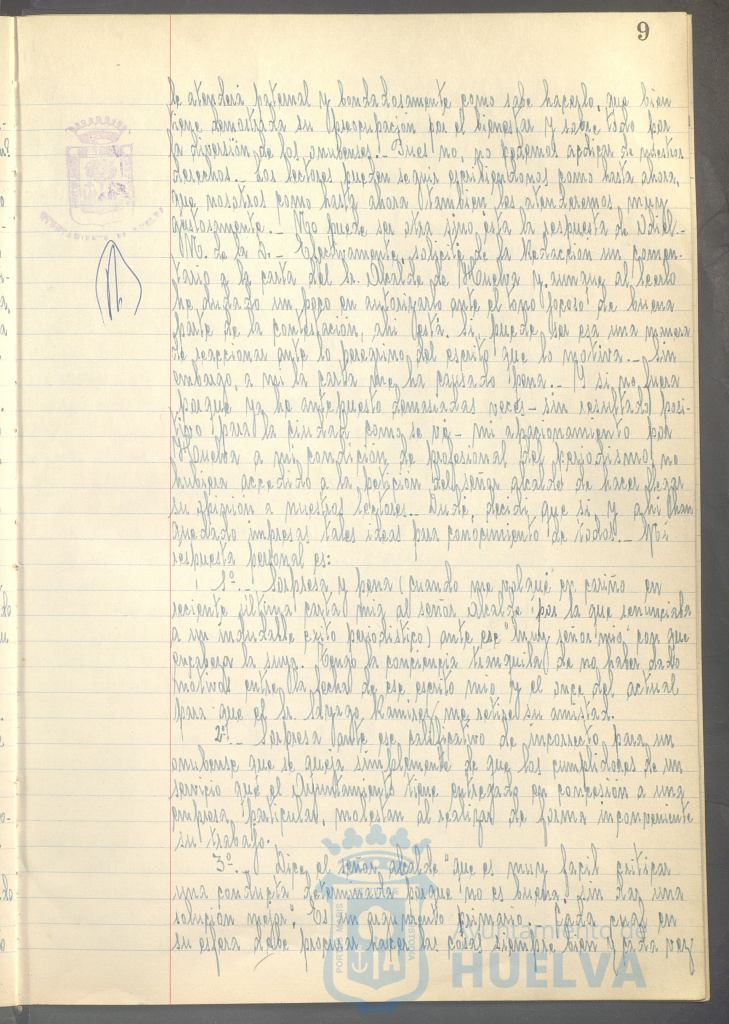 9
le atenderá paternal y bondadosamente como sabe hacerlo, que bien
tiene demostrada su preocupación por el bienestar y sobre todo por
la diversión de los onubenses.- Pues no, no podemos abdicar de nuestros
derechos.- Los lectores pueden seguir escribiéndonos como hasta ahora,
que nosotros como hasta ahora también les atenderemos muy
gustosamente.- No puede ser otra sino ésta la respuesta de Odiel.-
N. de la D.- Efectivamente, solicité de la Redacción un comen-
tario a la carta del Sr. Alcalde de Huelva y, aunque al leerlo
he dudado un poco en autorizarlo ante el tono jocoso de buena
parte de la contestación, ahí está. Sí, puede ser esa una manera
de reaccionar ante lo peregrino del escrito que lo motiva.- Sin
embargo, a mí la carta me ha causado pena.- Y si no fuera
porque ya he antepuesto demasiadas veces - sin resultado posi-
tivo para la ciudad como se ve - mi apasionamiento por
Huelva a mi condición de profesional del periodismo, no
hubiera accedido a la petición del señor alcalde de hacer llegar
su opinión a nuestros lectores. Dudé, decidí que sí, y ahí han
quedado impresas tales ideas para conocimiento de todos.- Mi
respuesta personal es:
1º.- Sorpresa y pena (cuando me volqué en cariño en
reciente última carta mía al señor Alcalde por la que renunciaba
a un indudable éxito periodístico) ante ese "muy señor mío, con que
encabeza la suya. Tengo la conciencia tranquila de no haber dado
motivos entre la fecha de ese escrito mío y el once del actual
para que el Sr. Ramírez me retire su amistad.
2º.- Sorpresa ante ese calificativo de incorrecto para un
onubense que se queja simplemente de que los cumplidores de un
servicio que el Ayuntamiento tiene entregado en concesión a una
empresa particular, molestan al realizar de forma inconveniente
su trabajo.
3º.- Dice el señor alcalde "que es muy fácil criticar
una conducta determinada porque no es buena, sin dar una
solución mejor". Es un argumento primario. Cada cual en
su esfera debe procurar hacer las cosas siempre bien y cada vez
Ayuntamiento de
HUELVA